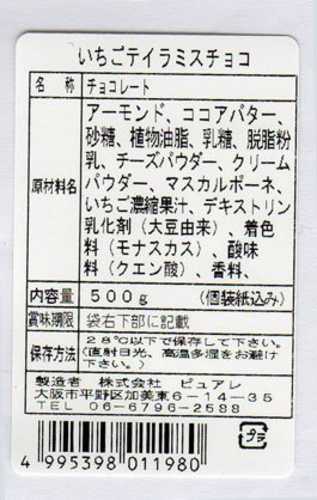 いちごテイラミスチョコ
名 称 チョコレート
原材料名 アーモンド、ココアバター、
砂糖、植物油脂、乳糖、脱脂粉
乳、チーズパウダー、クリーム
パウダー、マスカルポーネ、
いちご濃縮果汁、デキストリン
乳化剤（大豆由来）、着色
料（モナスカス）、酸味
料（クエン酸）、香料、
内容量 500g （個装紙込み）
賞味期限 袋右下部に記載
保存方法 28℃以下で保存して下さい。
(直射日光、高温多湿をお避け
下さい。)
製造者 株式会社 ピュアレ
大阪市平野区加美東6－14－35
TEL 06-6796-2588
4 995398 011980
プラ